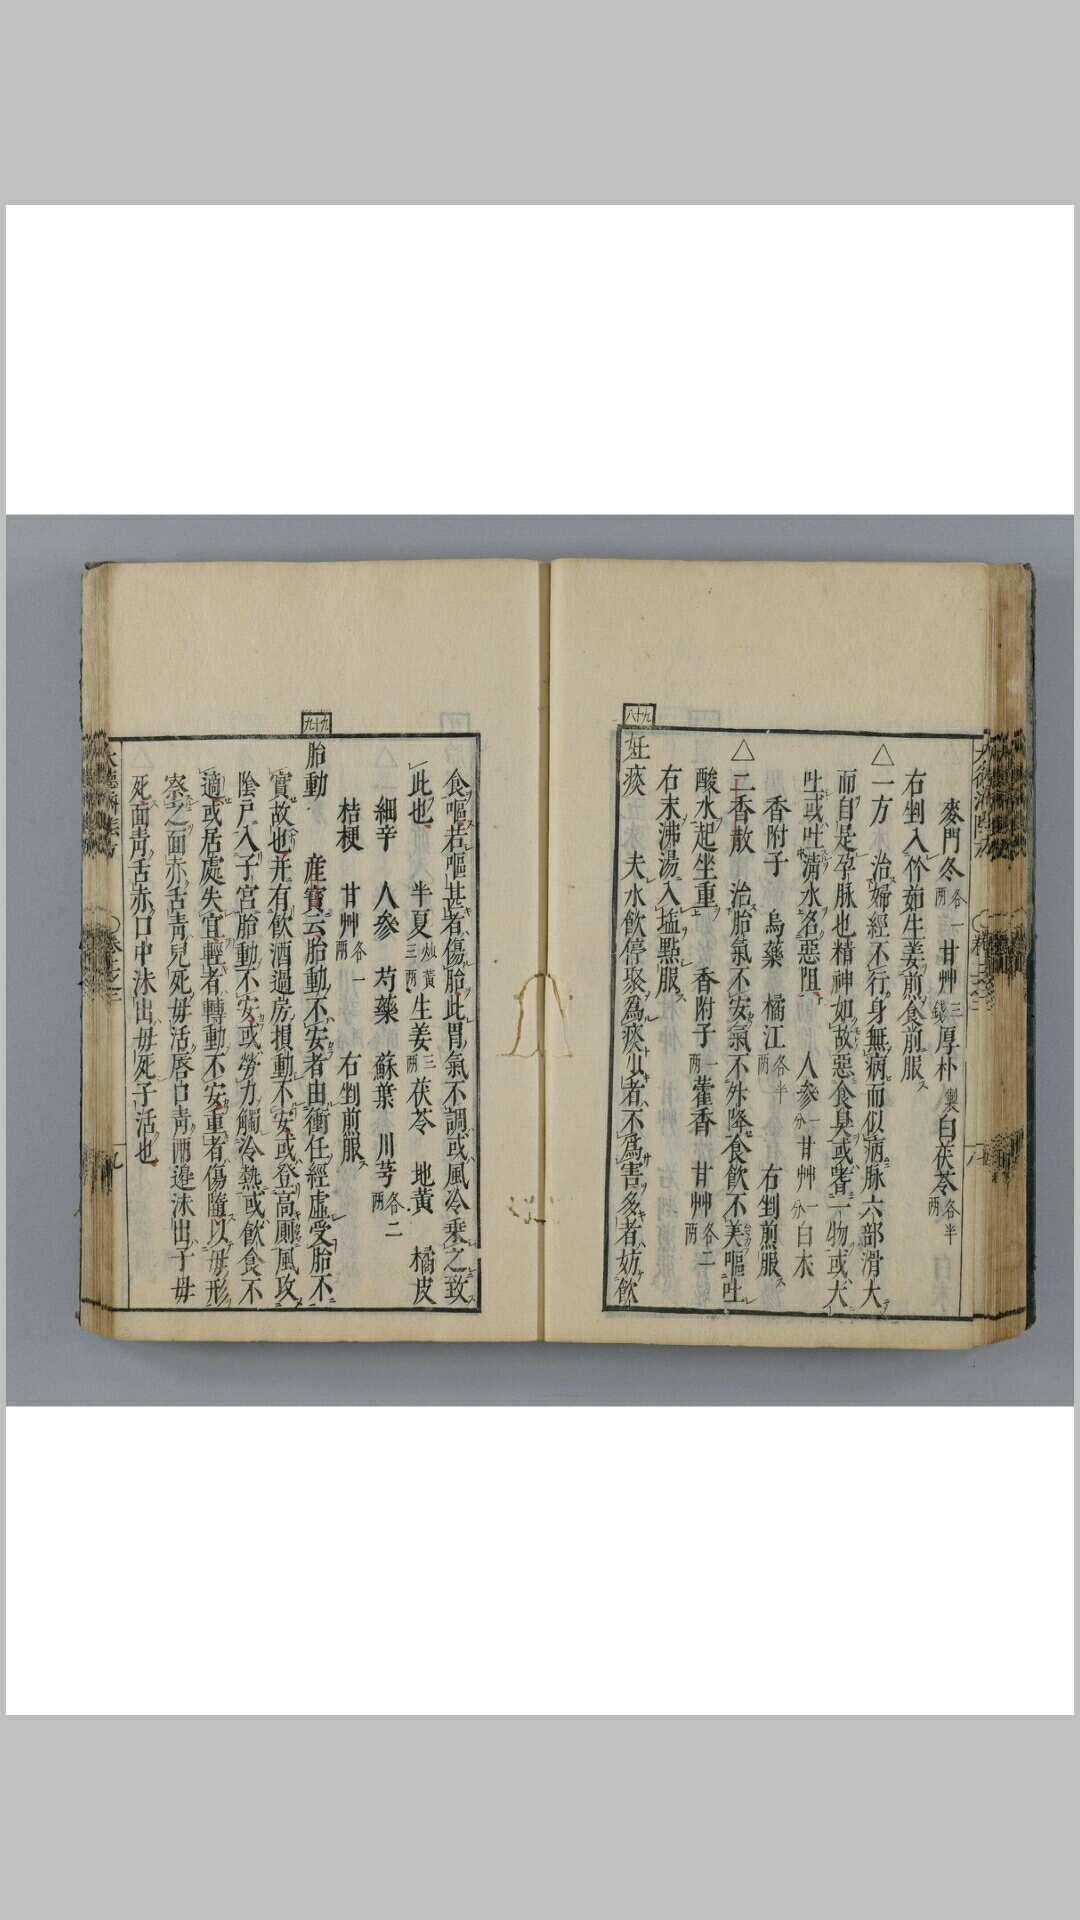 麥門冬各一兩甘艸三錢厚朴製白茯苓各半兩
右剉入竹茹生姜煎食前服
△一方 治婦經不行身無病而似病脉六部滑大
而自是孕脉也精神如故惡食臭或嗜一物或大
吐或吐淸水名惡阻 人參一分甘艸一分白朮
香附子 烏藥 橘江各半兩 右剉煎服
△二香散 治胎氣不安氣不升降食飲不美嘔吐
酸水起坐重 香附子一兩藿香 甘艸各二兩
右末沸湯入塩點服
九十八
妊痰 夫水飲停聚爲痰少者不爲害多者妨飲
食嘔若嘔甚者傷胎此胃氣不調或風冷乗之致
此也 半夏灿黄三兩生姜三兩茯苓 地黄 橘皮
細辛 人參 芍藥 蘇葉 川芎各二兩
桔梗 甘艸各一兩 右剉煎服
九十九
胎動 産寶云胎動不安者由衝任經虚受胎不
實故也并有飲酒過房損動不安或登高厠風攻
陰戸入子宮胎動不安或勞力觸冷熱或飲食不
適或居處失宜輕者轉動不安重者傷隨以母形
察之面赤舌靑兒死母活唇口靑兩邉沫出子母
死面靑舌赤口中沫出母死子活也
九